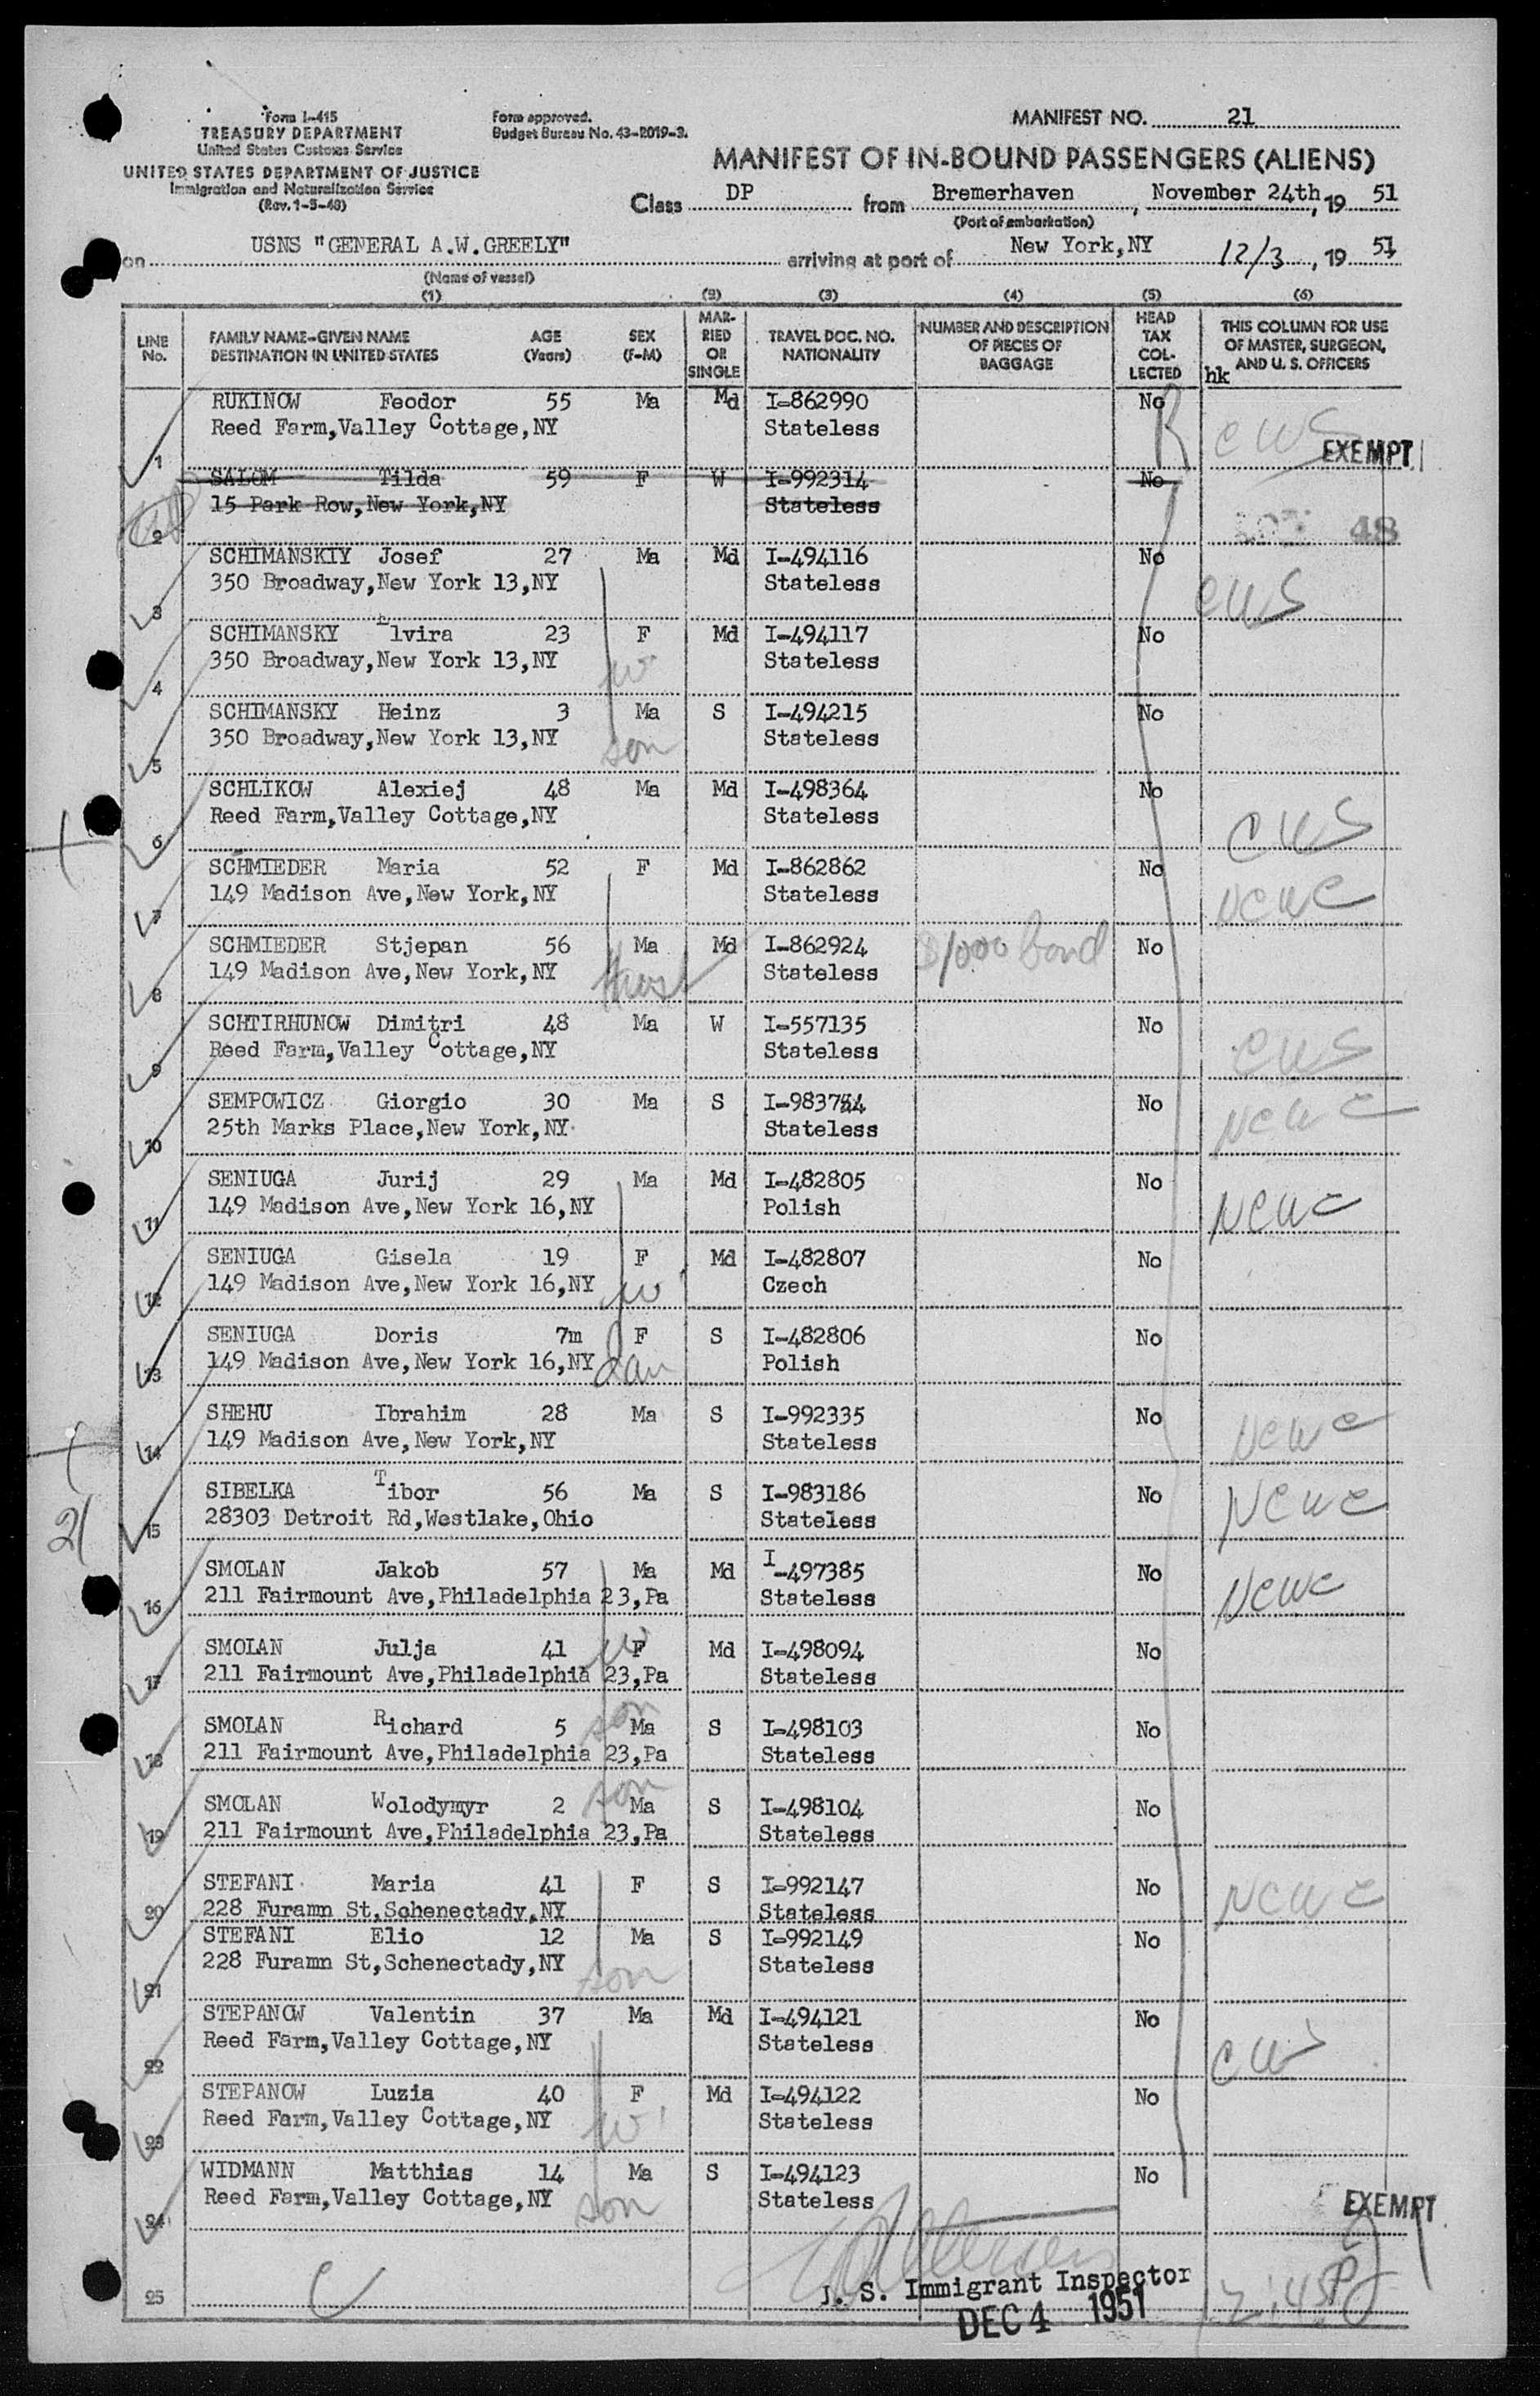 Form I-415
TREASURY DEPARTMENT
United States Customs Service
UNITED STATES DEPARTMENT OF JUSTICE
Immigration and Naturalization Service
(Rev. 1-5-48)
Form approved.
Budget Bureau No. 43-2019-3.
MANIFEST NO. 21
MANIFEST OF IN-BOUND PASSENGERS (ALIENS)
Class DP from Bremerhaven, November 24th, 19 51
(Port of embarkation)
on USNS "GENERAL A.W.GREELY" arriving at port of New York,NY 12/3, 19 51
(Name of vessel)
(1) (2) (3) (4) (5) (6)
LINE No. FAMILY NAME-GIVEN NAME DESTINATION IN UNITED STATES AGE (Years) SEX (F-M) MARRIED OR SINGLE TRAVEL DOC. NO. NATIONALITY NUMBER AND DESCRIPTION OF PIECES OF BAGGAGE HEAD TAX COLLECTED THIS COLUMN FOR USE OF MASTER, SURGEON, AND U. S. OFFICERS
hk
RUKINOW Feodor 55 Ma Md I-862990 No
1 Reed Farm,Valley Cottage,NY Stateless cws EXEMPT
SALOM Tilda 59 F W I-992314 No
2 15 Park Row,New York,NY Stateless 48
SCHIMANSKIY Josef 27 Ma Md I-494116 No
3 350 Broadway,New York 13,NY Stateless cws
SCHIMANSKY Elvira 23 F Md I-494117 No
4 350 Broadway,New York 13,NY w Stateless
SCHIMANSKY Heinz 3 Ma S I-494215 No
5 350 Broadway,New York 13,NY son Stateless
SCHLIKOW Alexiej 48 Ma Md I-498364 No
6 Reed Farm,Valley Cottage,NY Stateless cws
SCHMIEDER Maria 52 F Md I-862862 No
7 149 Madison Ave,New York,NY Stateless NCWC
SCHMIEDER Stjepan 56 Ma Md I-862924 $1000 bond No
8 149 Madison Ave,New York,NY Husb Stateless
SCHTIRHUNOW Dimitri 48 Ma W I-557135 No
9 Reed Farm,Valley Cottage,NY Stateless cws
SEMPOWICZ Giorgio 30 Ma S No
10 25th Marks Place,New York,NY Stateless NCWC
SENIUGA Jurij 29 Ma Md I-482805 No
11 149 Madison Ave,New York 16,NY Polish NCWC
SENIUGA Gisela 19 F Md I-482807 No
12 149 Madison Ave,New York 16,NY w Czech
SENIUGA Doris 7m F S I-482806 No
13 149 Madison Ave,New York 16,NY dau Polish
SHEHU Ibrahim 28 Ma S I-992335 No
14 149 Madison Ave,New York,NY Stateless NCWC
SIBELKA Tibor 56 Ma S I-983186 No
21 15 28303 Detroit Rd,Westlake,Ohio Stateless NCWC
SMOLAN Jakob 57 Ma Md I-497385 No
16 211 Fairmount Ave,Philadelphia 23,Pa Stateless NCWC
SMOLAN Julja 41 w F Md I-498094 No
17 211 Fairmount Ave,Philadelphia 23,Pa Stateless
SMOLAN Richard 5 son Ma S I-498103 No
18 211 Fairmount Ave,Philadelphia 23,Pa Stateless
SMOLAN Wolodymyr 2 son Ma S I-498104 No
19 211 Fairmount Ave,Philadelphia 23,Pa Stateless
STEFANI Maria 41 F S I-992147 No
20 228 Furamn St,Schenectady,NY Stateless NCWC
STEFANI Elio 12 Ma S I-992149 No
21 228 Furamn St,Schenectady,NY son Stateless
STEPANOW Valentin 37 Ma Md I-494121 No
22 Reed Farm,Valley Cottage,NY Stateless cws
STEPANOW Luzia 40 F Md I-494122 No
23 Reed Farm,Valley Cottage,NY w Stateless
WIDMANN Matthias 14 Ma S I-494123 No
24 Reed Farm,Valley Cottage,NY son Stateless EXEMPT
25
J. S. Immigrant Inspector
DEC 4 1951